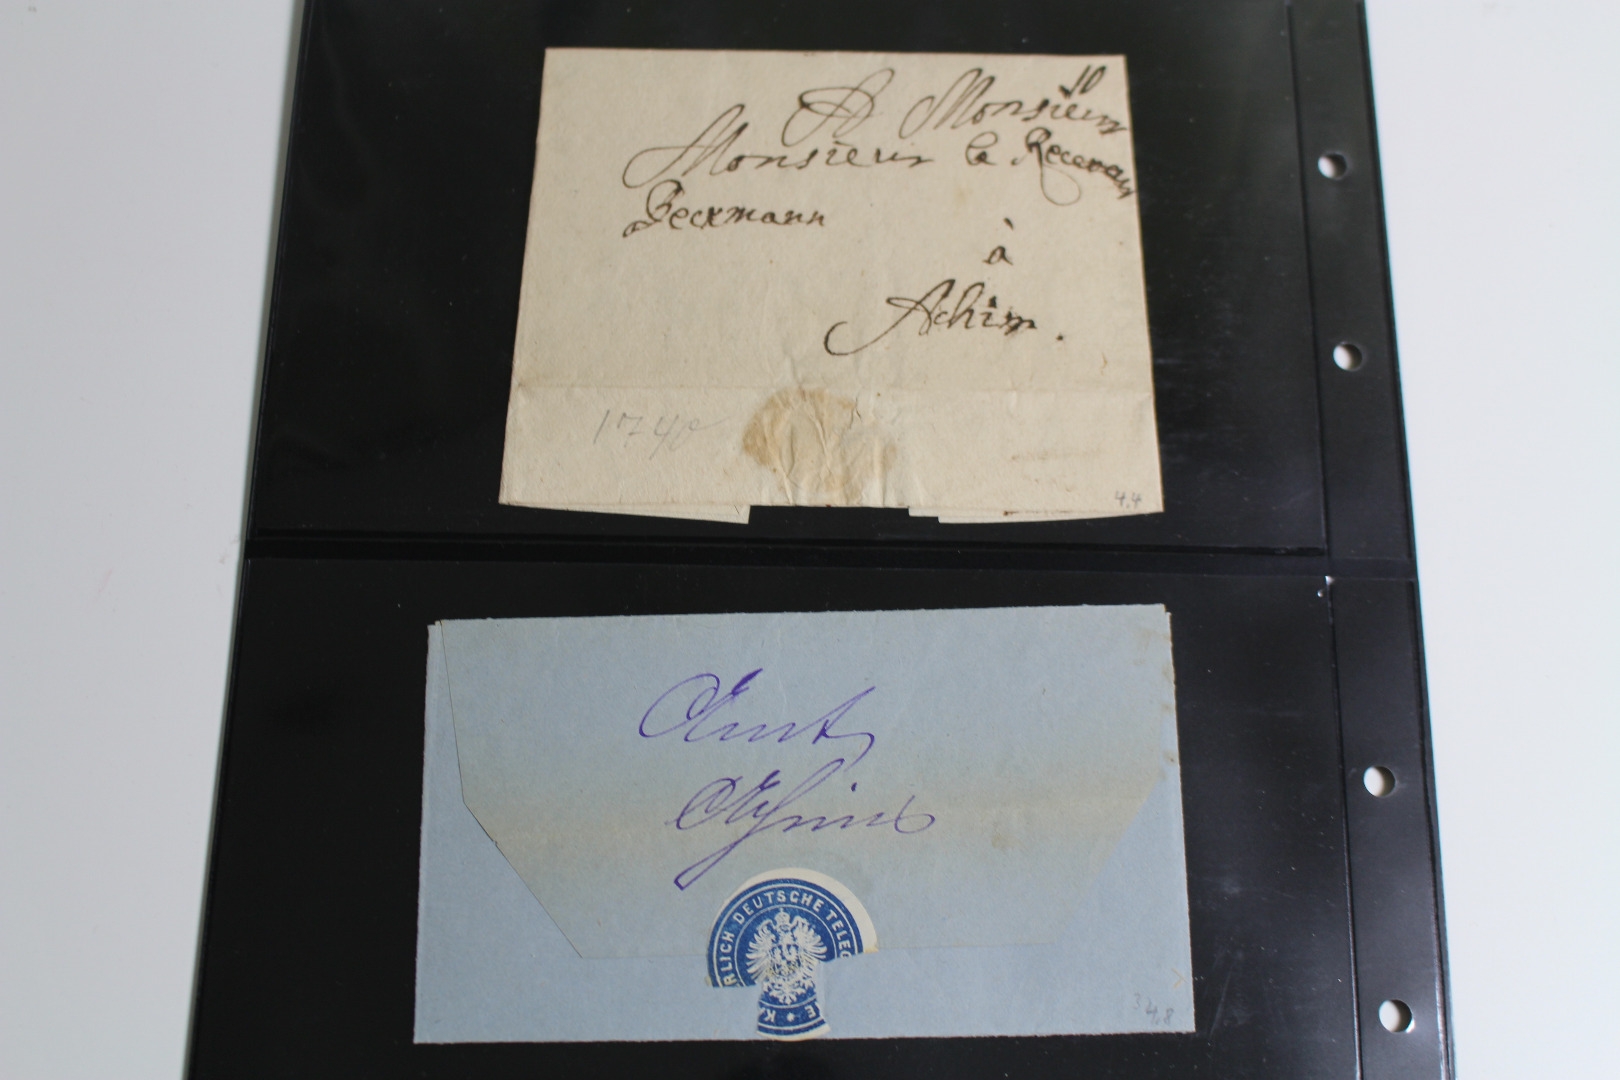 10
A Monsieur
Monsieur le Receveur
Beckmann
à
Achim.
1740
4,4
Amt
Achim
RLICH DEUTSCHE TELEG
E * K
34,8